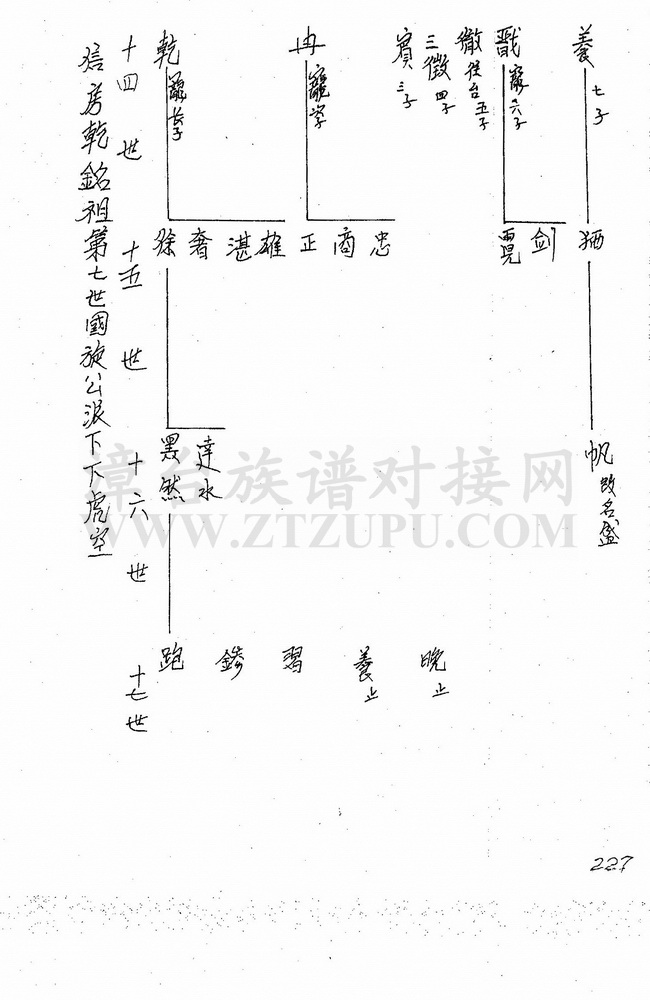 信房乾銘祖第七世國旋公派下下虎空
十四世
十五世
十六世
十七世
乾
長子
冉
賓 三子
三徵 四子
徹 往台 五子
戳 六子
養 七子
奢
湛
雄
正
商
忠
剑
達水
然
帆 改名盛
跑
鏒
習
養 止
晚 止
漳台族谱对接网
WWW.ZTZUPU.COM
227